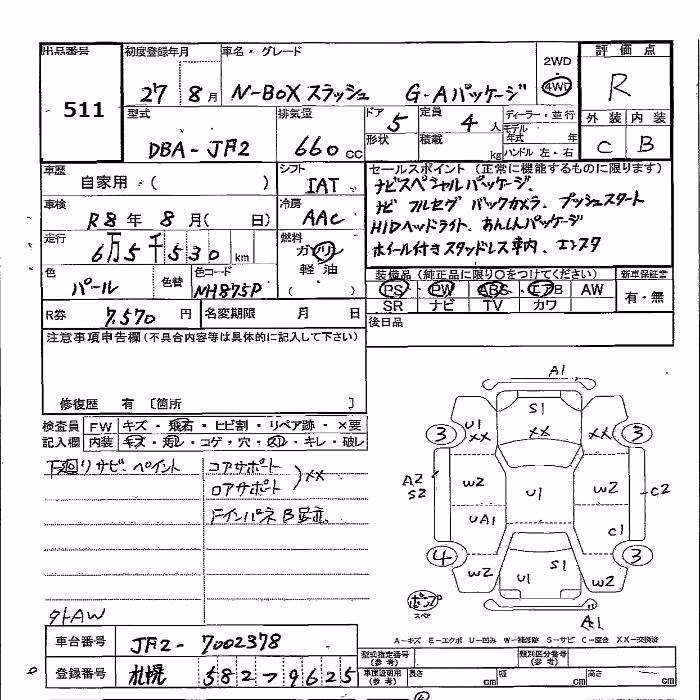 出品番号 初度登録年月 車名・グレード 2WD 評価点
511 27 8月 N-BOX スラッシュ G・Aパッケージ 4WD R
型式 排気量 ドア 定員 ディーラー・並行 外装 内装
DBA-JF2 660cc 5 4人 モデル年式 年
形状 積載 kg ハンドル 左・右 C B
車歴 シフト セールスポイント(正常に機能するものに限ります)
自家用・( ) IAT ナビスペシャルパッケージ、
車検 冷房 ナビ フルセグ バックカメラ、プッシュスタート
R8年 8月( 日) AAC HIDヘッドライト、あんしんパッケージ
走行 燃料 ホイール付きスタッドレス車内、エンスタ
6万5千530km ガソリン
軽油
( )
色 色替 色コード 装備品(純正品に限り〇をつけてください) 新車保証書
パール NH875P PS PW ABS エアB AW 有・無
SR ナビ TV カワ
R券 7,570円 名変期限 月 日 後日品
注意事項申告欄(不具合内容等は具体的に記入して下さい)
修復歴 有 〔箇所 〕
検査員 FW キズ・飛石・ヒビ割・リペア跡・×要
記入欄 内装 キズ・汚レ・コゲ・穴・スレ・キレ・破レ
下廻りサビ ペイント コアサポート
ロアサポート ××
Fインパネ B
外AW
A1
S1
U1
×× ×× ××
3 3
A2
S2
W2 W2
C2
U1
UA1 C1
4 3
W2 U1 S1 W2
A1
A-キズ E-エクボ U-凹み W-補修跡 S-サビ C-腐食 XX-交換済
車台番号 JF2-7002378 型式指定番号(参考) 類別区分番号(参考)
登録番号 札幌 582 9625 車庫証明用(参考) 長さ cm 幅 cm 高さ cm